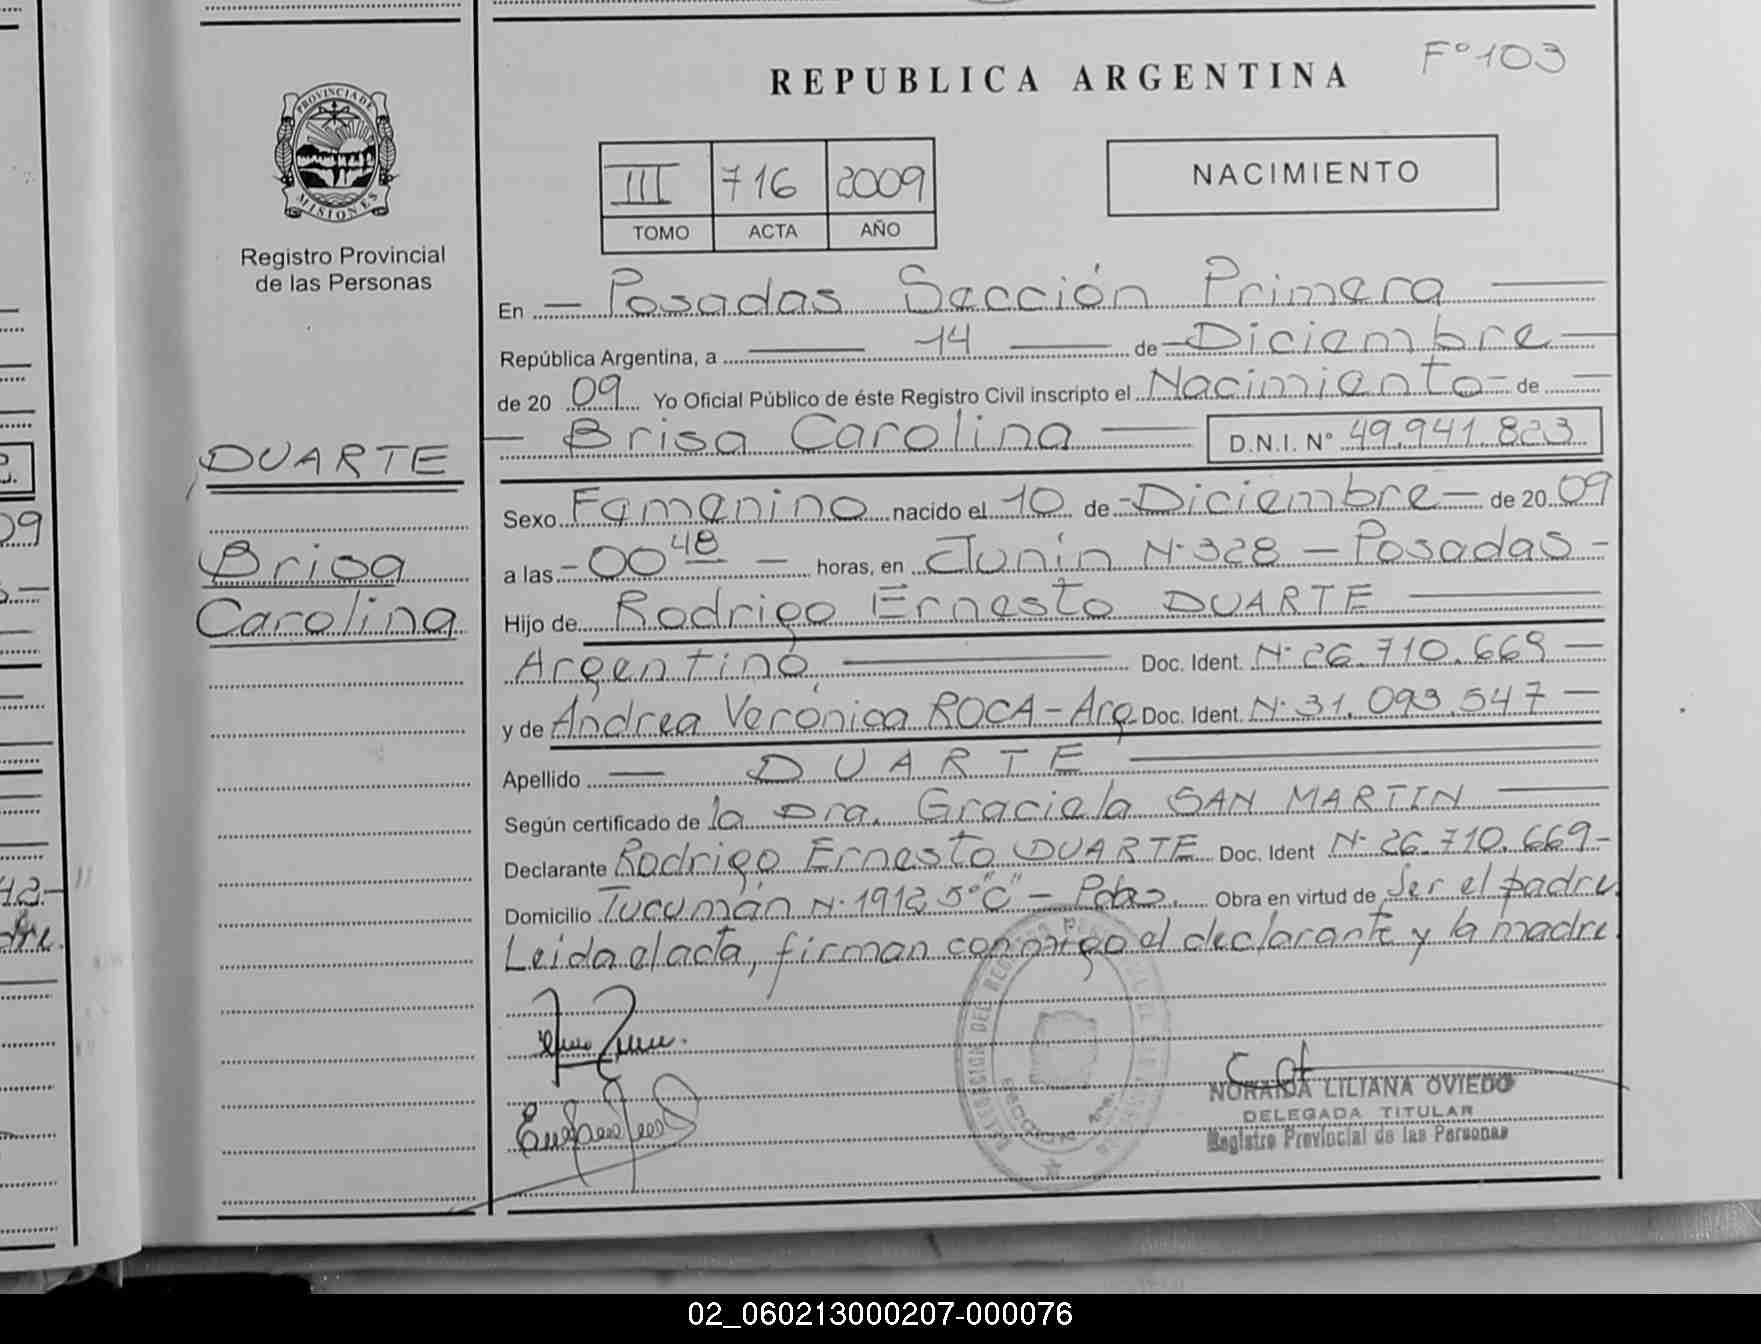 F° 103
REPUBLICA ARGENTINA
PROVINCIA DE
MISIONES
Registro Provincial
de las Personas
III 716 2009
TOMO ACTA AÑO
NACIMIENTO
En — Posadas Sección Primera —
República Argentina, a — 14 — de — Diciembre —
de 20 09 Yo Oficial Público de éste Registro Civil inscripto el Nacimiento - de —
— Brisa Carolina — D.N.I. N° 49.941.823
DUARTE
Brisa
Carolina
Sexo Femenino nacido el 10 de - Diciembre - de 20 09
a las - 00 48 — horas, en Junín N° 328 - Posadas -
Hijo de Rodrigo Ernesto DUARTE —
Argentino, — Doc. Ident. N° 26.710.669 —
y de Andrea Verónica ROCA - Arg. Doc. Ident. N° 31.093.547 —
Apellido — DUARTE —
Según certificado de la Dra. Graciela SAN MARTIN —
Declarante Rodrigo Ernesto DUARTE Doc. Ident N° 26.710.669 -
Domicilio Tucumán N° 1912 5° "C" - Pdas. Obra en virtud de Ser el padre.
Leida el acta, firman conmigo el declarante y la madre.
NORAIDA LILIANA OVIEDO
DELEGADA TITULAR
Registro Provincial de las Personas
02_060213000207-000076